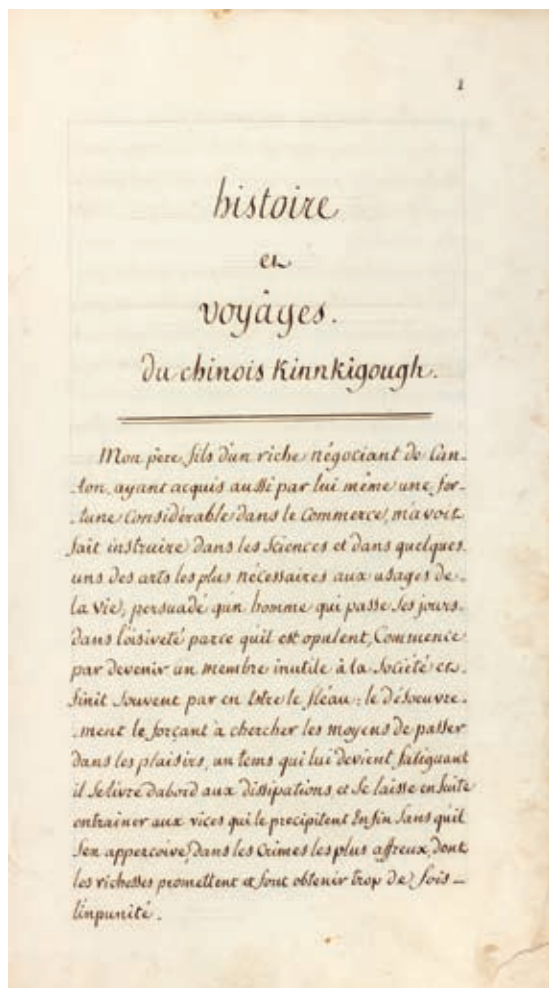 1
histoire
et
voyâges.
du chinois Kinnkigough.
Mon père fils d'un riche négociant de Can-
-ton, ayant acquis aussi par lui même une for-
-tune Considérable dans le Commerce, m'avoit
fait instruire dans les Sciences et dans quelques
uns des arts les plus nécessaires aux usages de
la vie, persuadé qu'un homme qui passe Ses jours
dans l'oisiveté parce qu'il est opulent, Commence
par devenir un membre inutile à la Société et
finit Souvent par en Estre le fléau; le désoeuvre-
-ment le forçant à chercher les moyens de passer
dans les plaisirs, un tems qui lui devient fatiguant
il Se livre dabord aux dissipations et Se laisse ensuite
entrainer aux vices qui le precipitent Enfin Sans quil
Sen apperçoive, dans les Crimes les plus affreux, dont
les richesses promettent et font obtenir trop de fois
l'impunité.